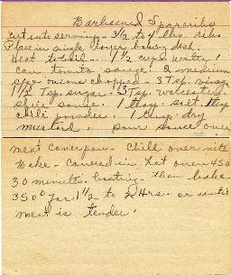 Barbecued Spareribs
cut into serving - 3 1/2 to 4 lbs. ribs
Place in single layer baking dish.
Heat to boil - 1 1/2 cups water 1
can tomato sauce - 2 medium
size onions chopped - 3 Tsp. vinegar
1 1/2 Tsp. sugar. 3 Tsp.
sauce. 1 tsp. salt. 1 tsp
chili powder. 1 tsp. dry
mustard. pour sauce over
meat cover pan - chill over nite
Bake - covered in hot oven 450
30 minutes basting - then bake
350° for 1 1/2 to 2 Hrs. or until
meat is tender.